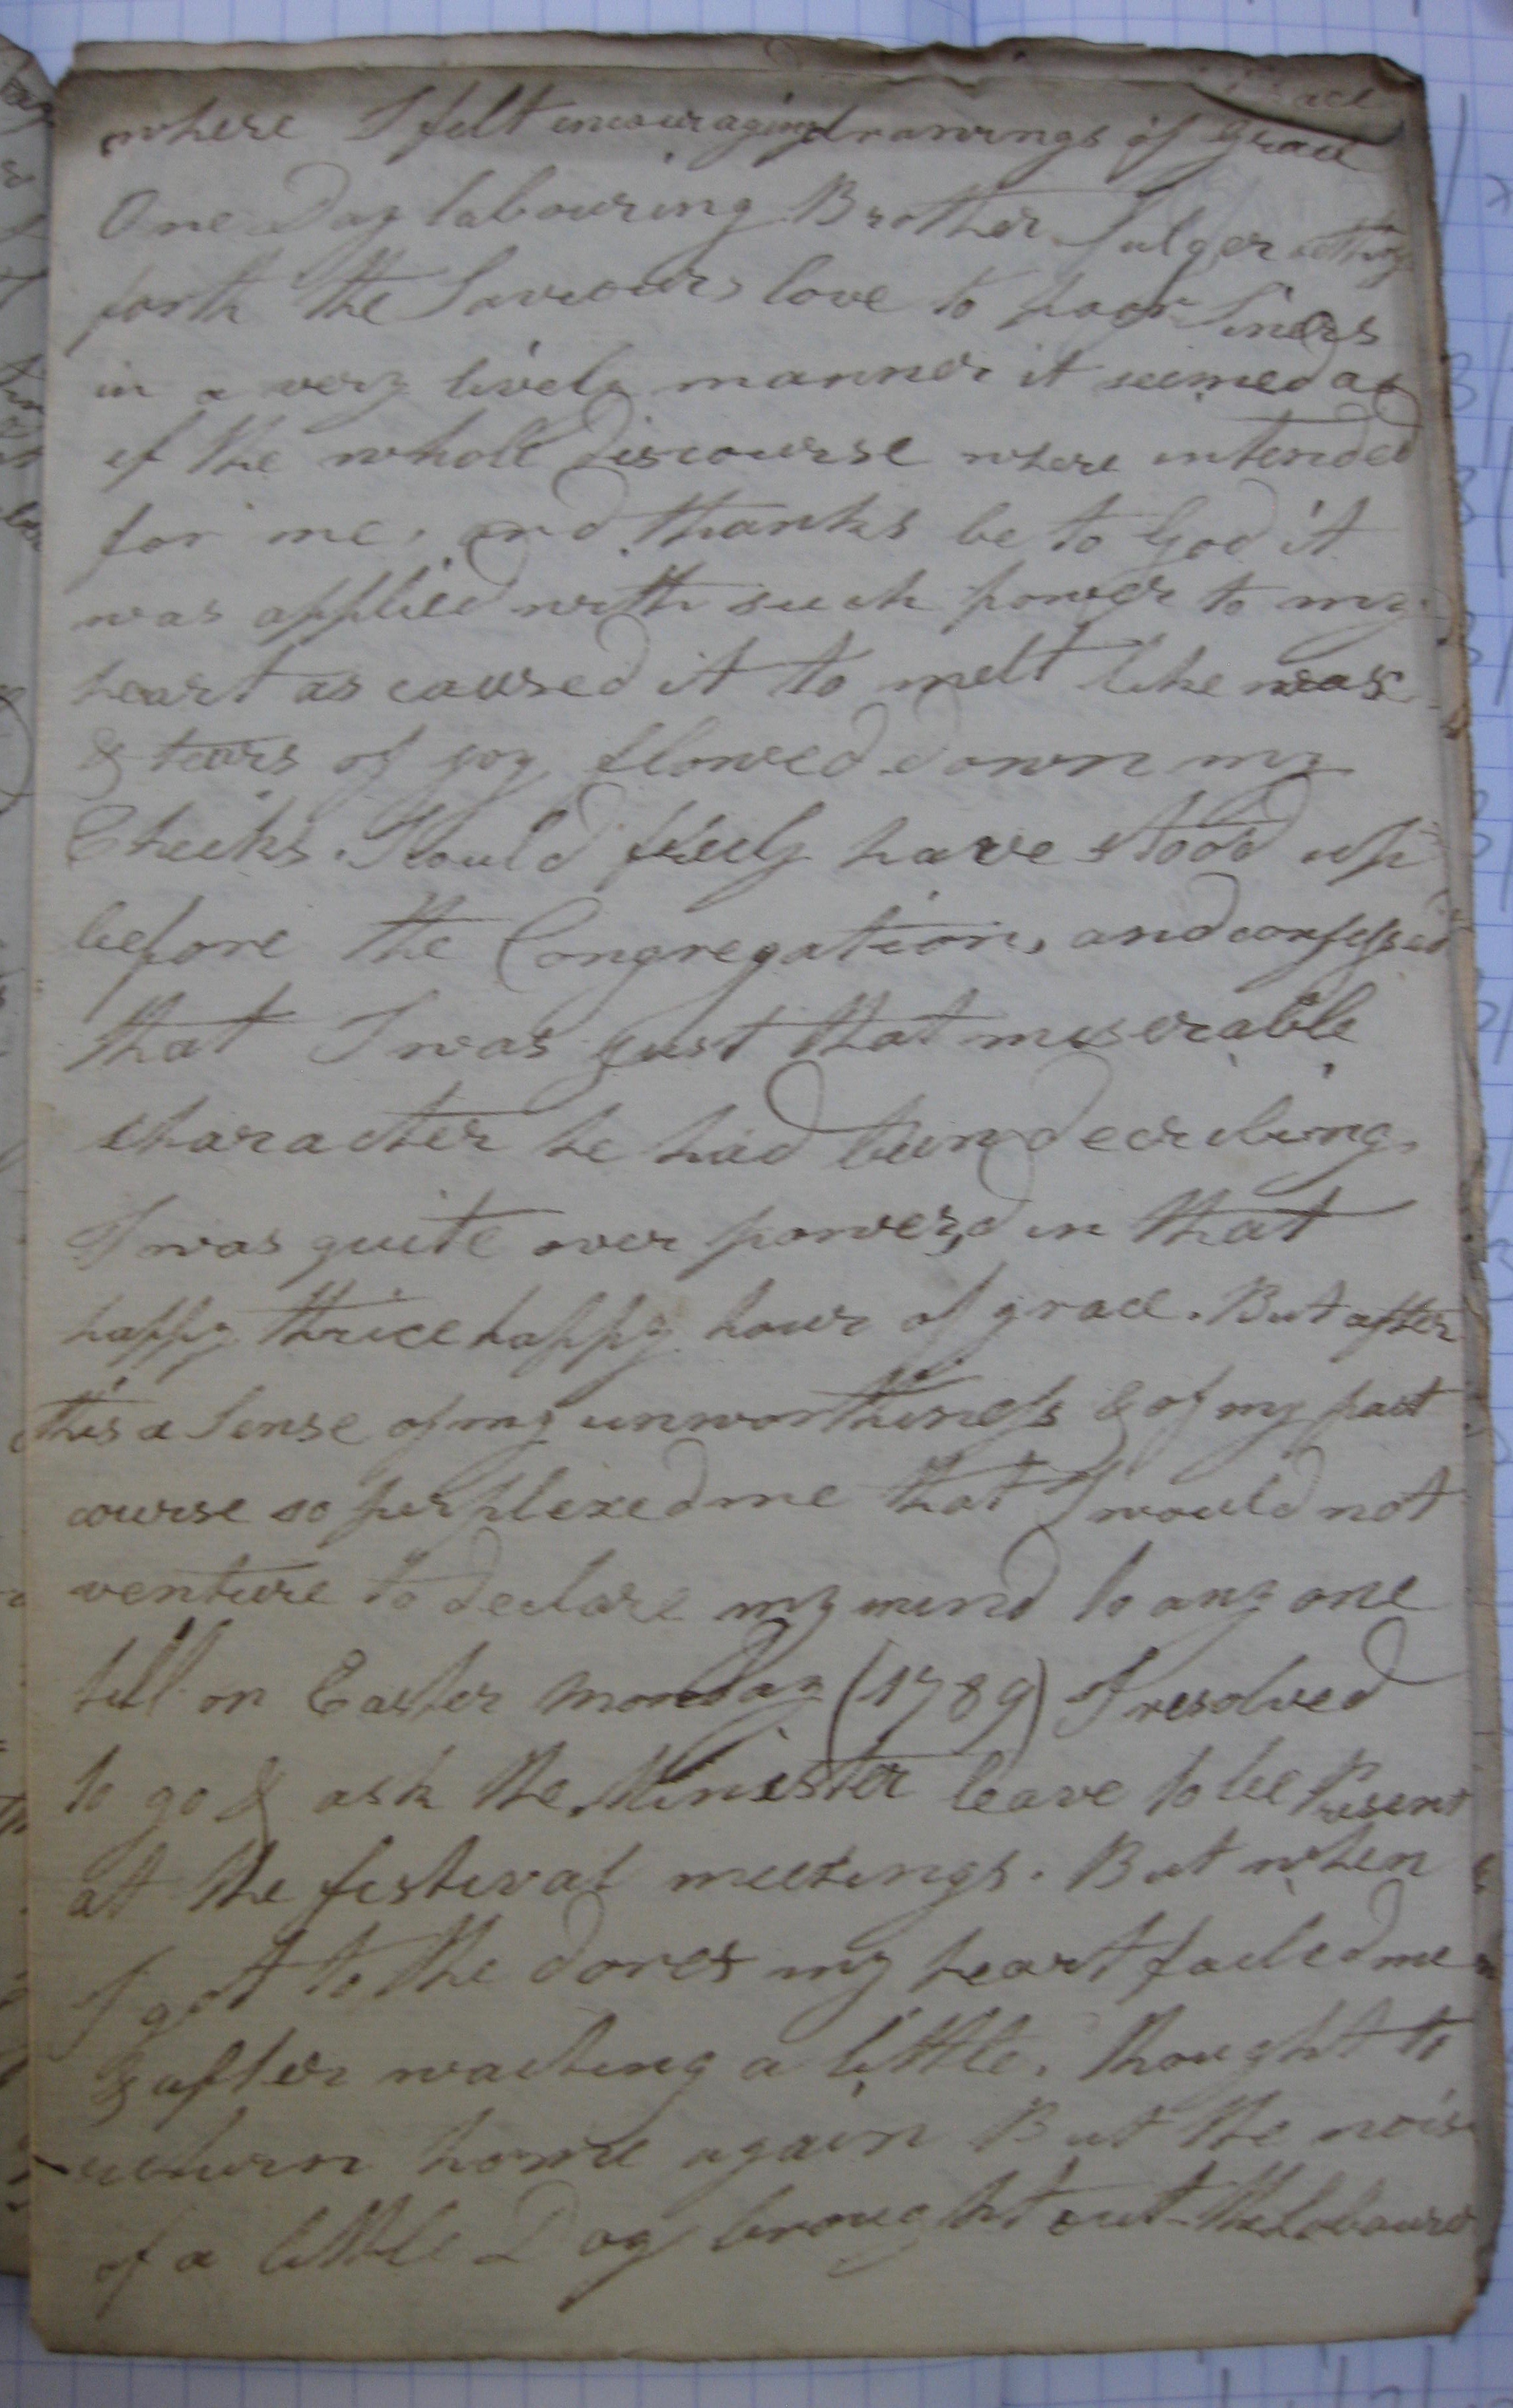 where I felt encouraging drawings of Grace
One Day labouring Brother Sulger setting
forth the Saviours love to poor Siners
in a very lively manner it seemed as
if the whole Discourse where intended
for me, and thanks be to God it
was applied with such power to my
heart as caused it to melt like wax
& tears of joy flowed down my
Cheeks. I could freely have stood up
before the Congregation, and confessed
that I was just that miserable
character he had been decribing,
I was quite over power,d in that
happy thrice happy hour of grace. But after
this a Sense of my unworthiness & of my past
course so perplexed me that I would not
venture to declare my mind to any one
till on Easter monday (1789) I resolved
to go & ask the Minister leave to be Present
at the festival meetings. But when
I got to the dores my heart failed me
& after waiting a little, thought to
return home again But the nois
of a little Dog brought out the Labourer